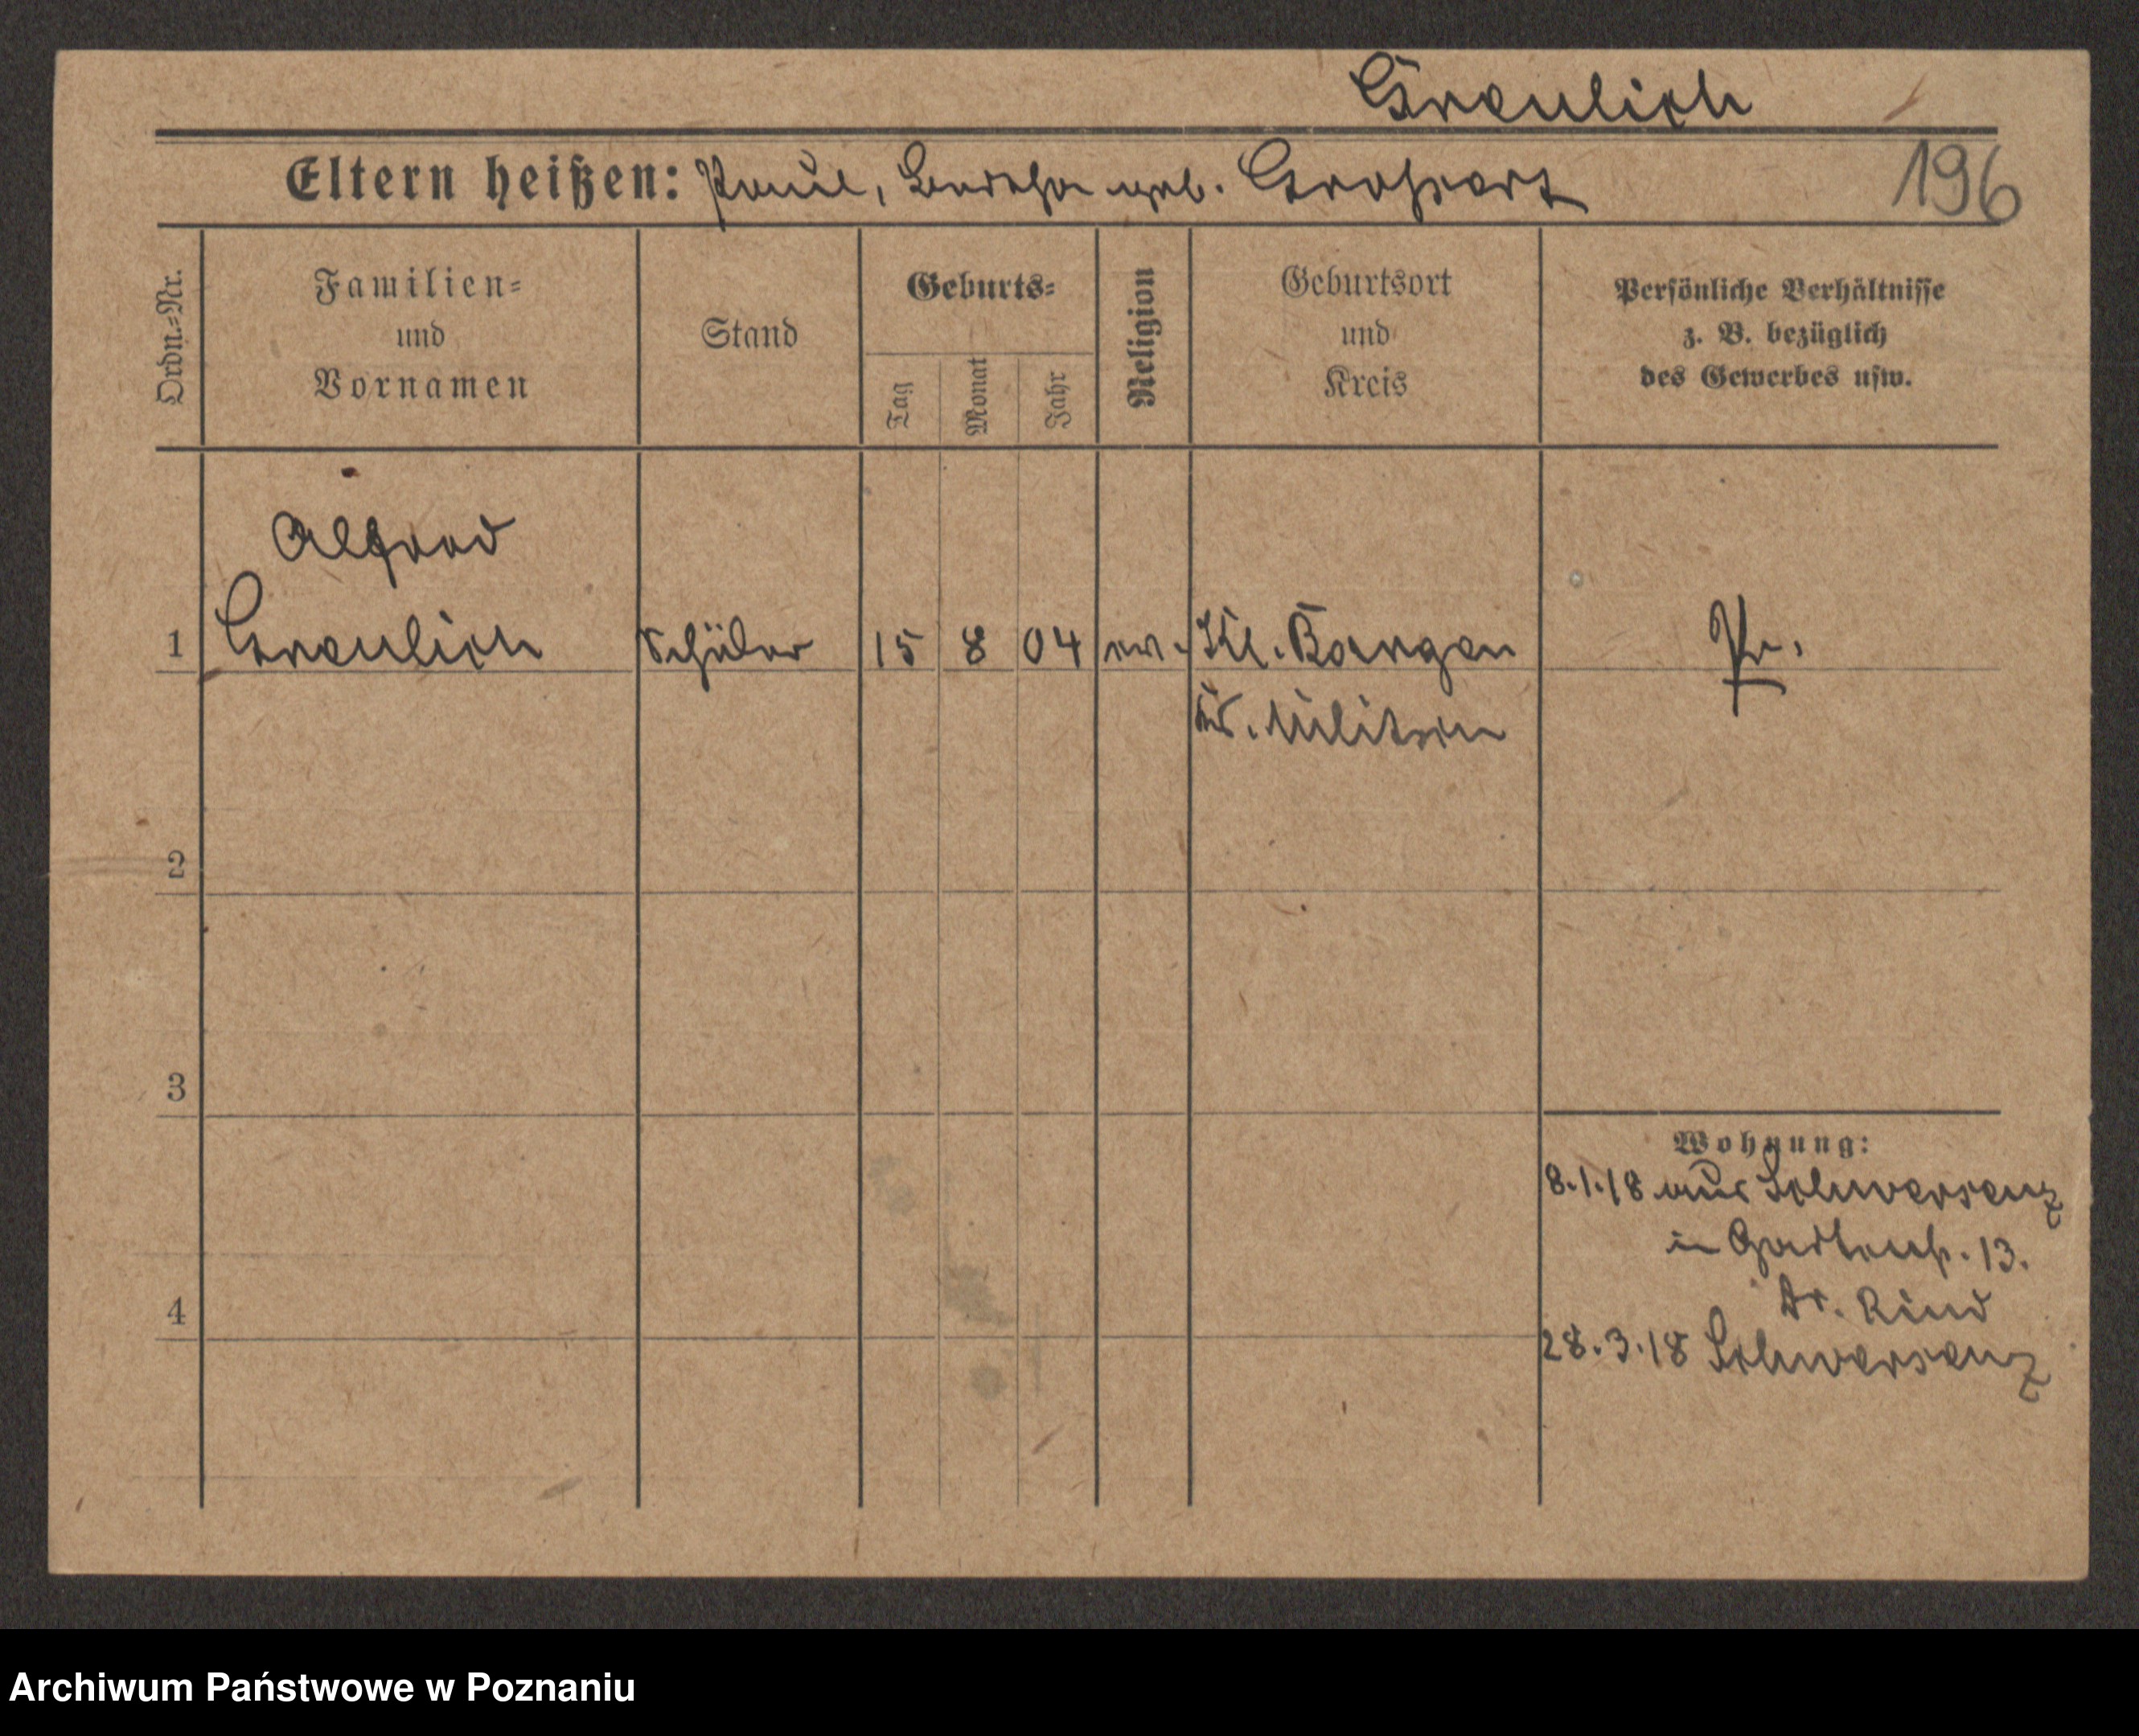 Greulich
Eltern heißen: Paul, Bertha geb. Großert
196
Ordn.=Nr.
Familien=
und
Vornamen
Stand
Geburts=
Tag
Monat
Jahr
Religion
Geburtsort
und
Kreis
Persönliche Verhältnisse
z. B. bezüglich
des Gewerbes usw.
Alfred
1 Greulich Schüler 15 8 04 ev. Kl. Bargen Pr.
Kr. Militsch
2
3
Wohnung:
8.1.18 aus Schwersenz
in Gartenstr. 13.
4
Dr. Rind
28.3.18 Schwersenz
Archiwum Państwowe w Poznaniu